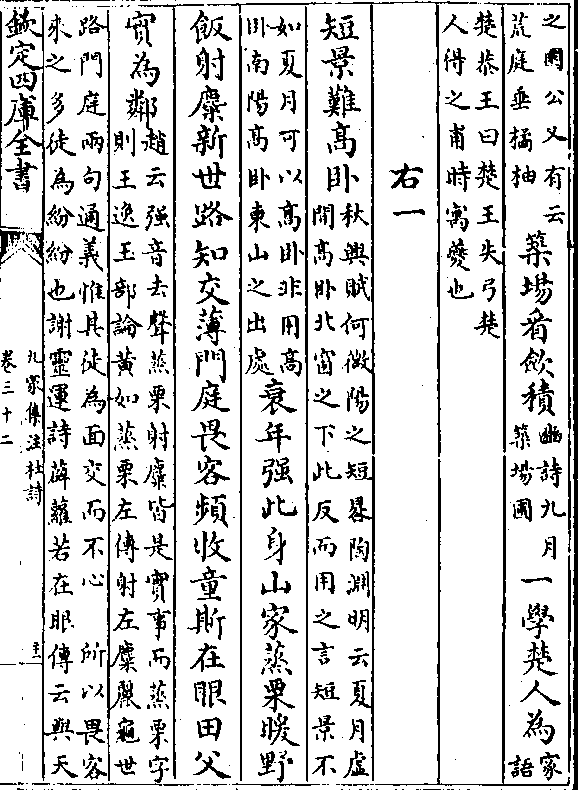 之園公又有云
荒庭垂橘柚
築場看歛積
豳詩九月
築場圃
一學楚人為
家
語
楚恭王曰楚王失弓楚
人得之甫時寓夔也
右一
短景難高卧
秋興賦何微陽之短晷陶淵明云夏月虚
閒高卧北窗之下此反而用之言短景不
如夏月可以高卧非用高
卧南陽高卧東山之出處
衰年强此身山家蒸栗暖野
飯射麋新世路知交薄門庭畏客頻收童斯在眼田父
實為鄰
趙云强音去聲蒸栗射麋皆是實事而蒸栗字
則王逸玉部論黄如蒸栗左傳射左麋麗龜世
路門庭兩句通義惟其徒為面交而不心 所以畏客
来之多徒為紛紛也謝靈運詩薜蘿若在眼傳云與天
欽定四庫全書
九家集注杜詩
卷三十二